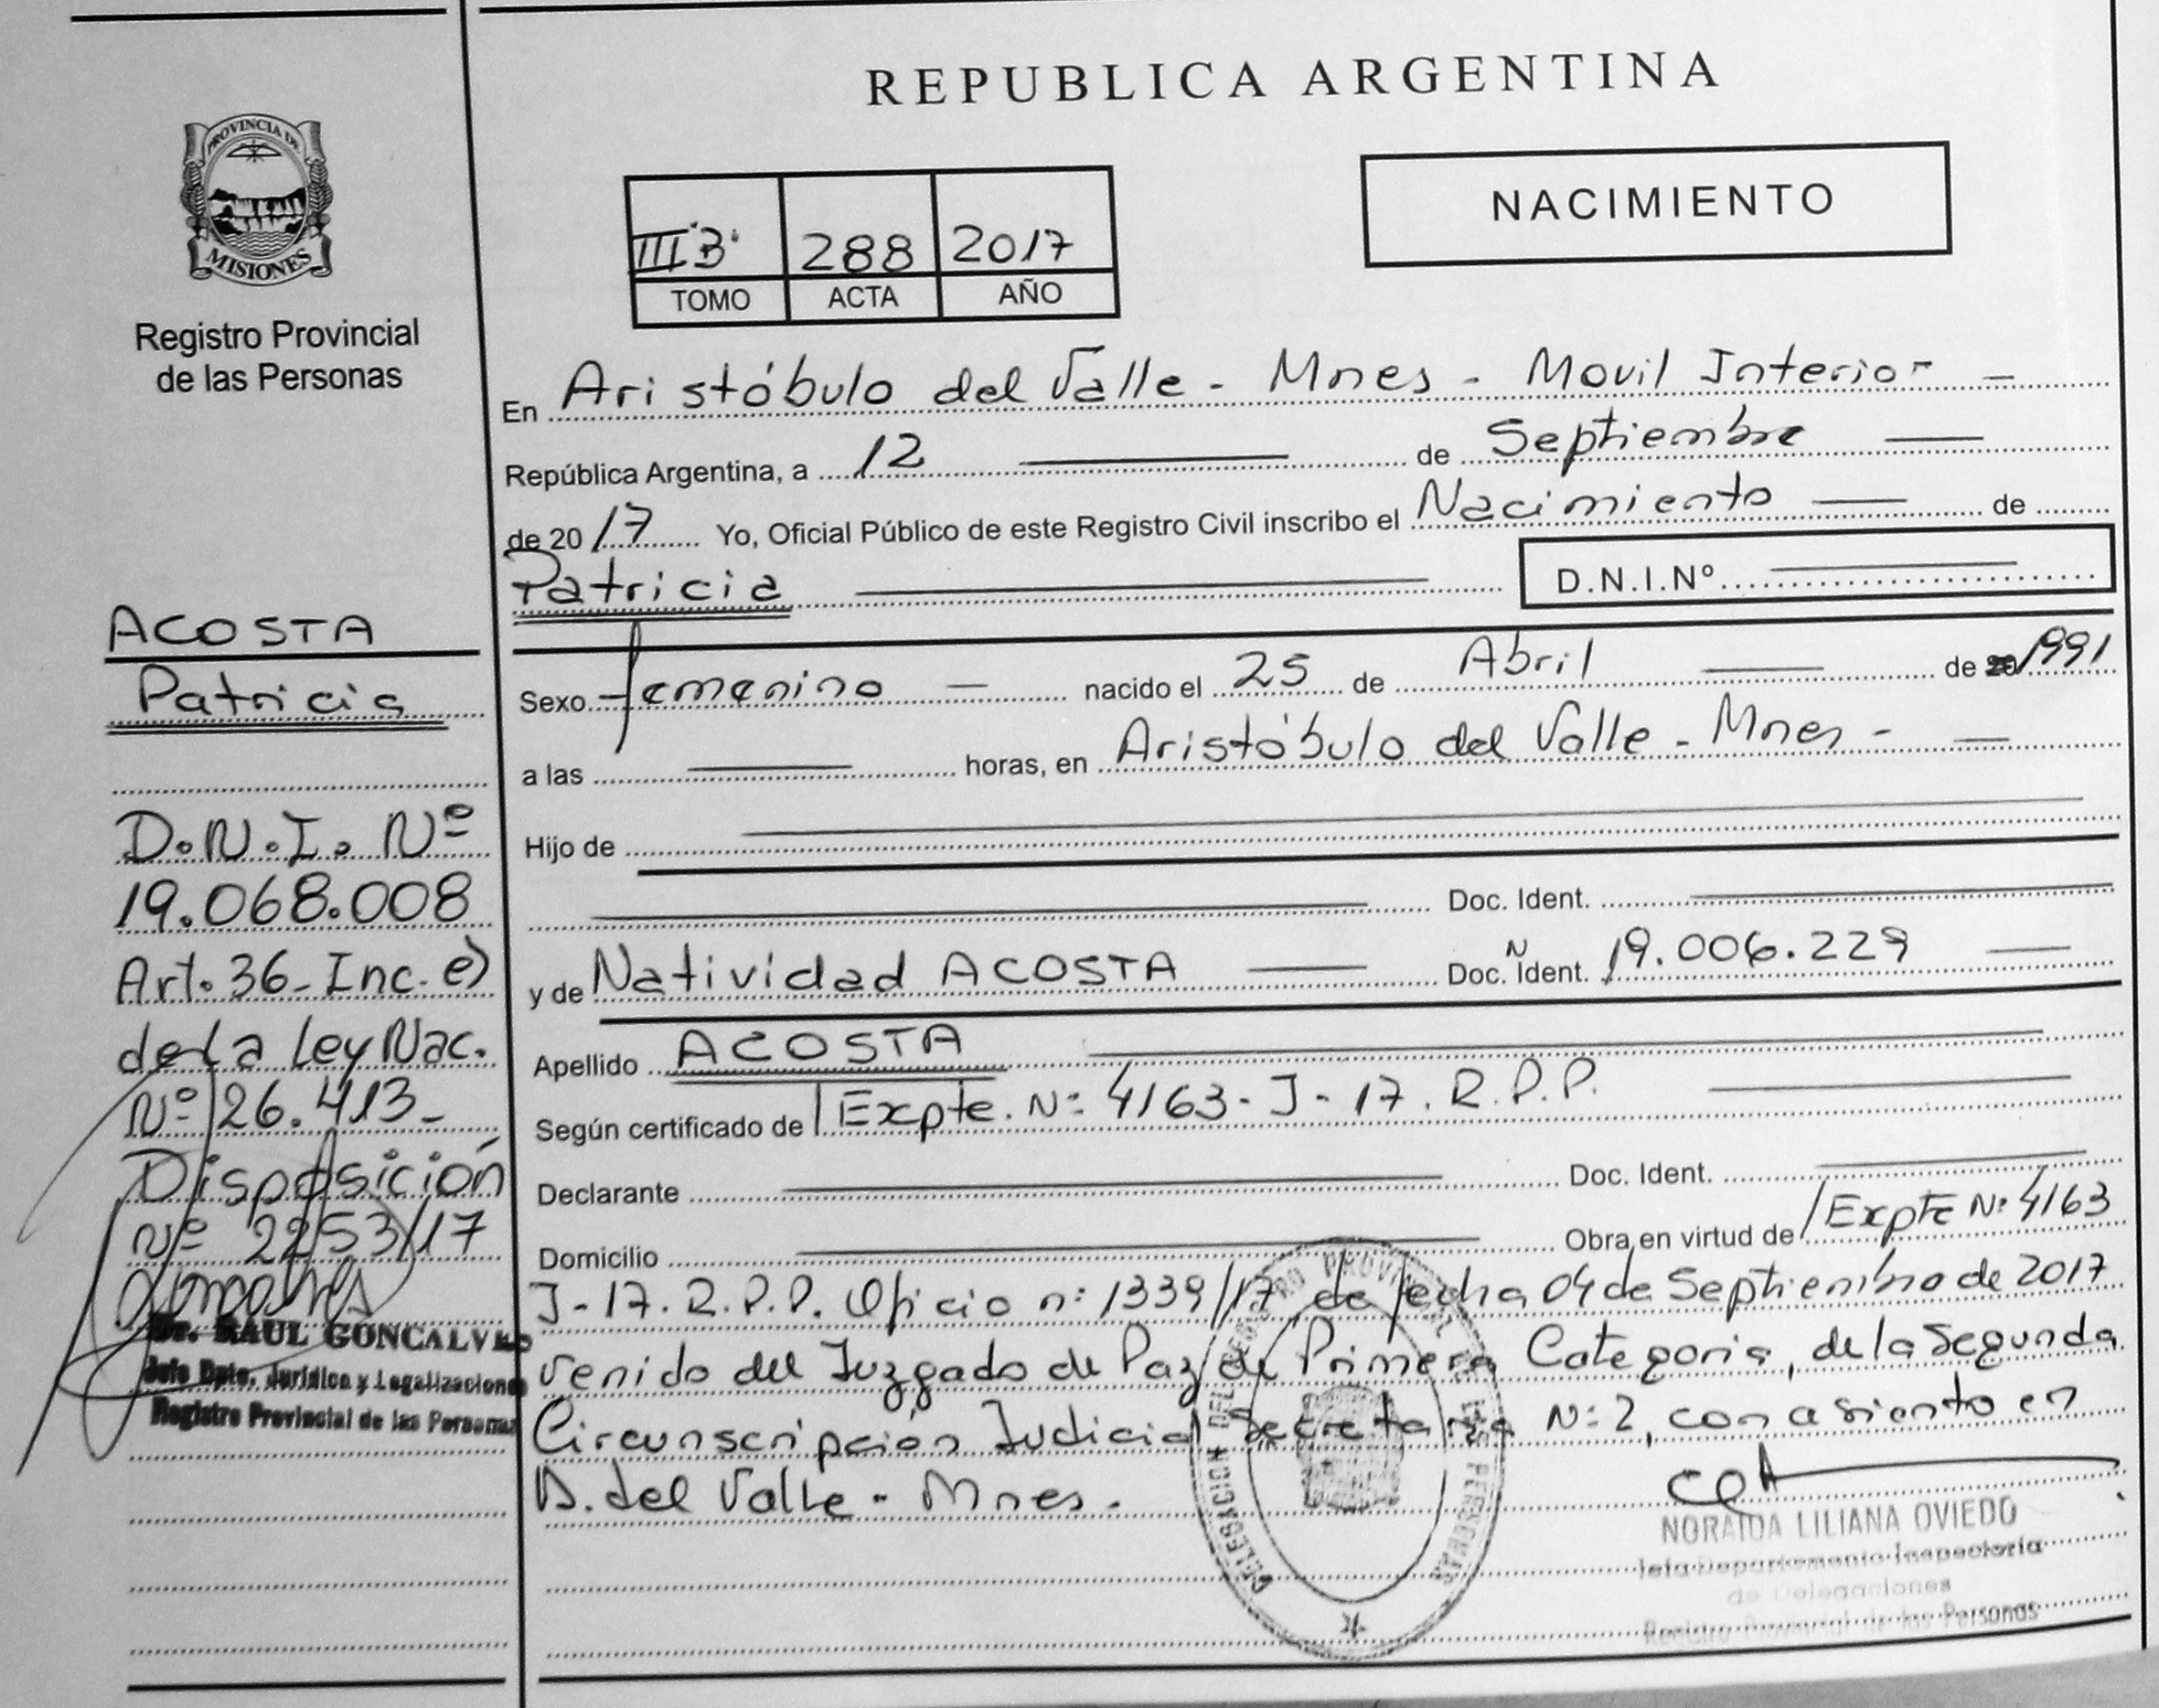 REPUBLICA ARGENTINA
PROVINCIA DE
MISIONES
Registro Provincial
de las Personas
NACIMIENTO
III"B" 288 2017
TOMO ACTA AÑO
En Aristóbulo del Valle - Mnes - Movil Interior -
República Argentina, a 12 de Septiembre
de 2017 Yo, Oficial Público de este Registro Civil inscribo el Nacimiento de
Patricia D.N.I.Nº
Sexo femenino nacido el 25 de Abril de 1991
a las horas, en Aristóbulo del Valle - Mnes -
Hijo de
Doc. Ident.
y de Natividad ACOSTA Doc. Ident. N 19.006.229
Apellido ACOSTA
Según certificado de Expte. Nº 4163- J - 17. R.P.P.
Declarante Doc. Ident.
Domicilio Obra en virtud de Expte Nº 4163
J-17. R.P.P. Oficio nº 1339/17 de fecha 04 de Septiembre de 2017
venido del Juzgado de Paz de Primera Categoria, de la Segunda
Circunscripción Judicial Secretaria Nº 2, con asiento en
A. del Valle - Mnes.
ACOSTA
Patricia
D.N.I. Nº
19.068.008
Art. 36- Inc. e)
de La Ley Nac.
Nº 26.413-
Disposición
Nº 2253/17
Dr. RAUL GONCALVES
Jefe Dpto. Jurídico y Legalizaciones
Registro Provincial de las Personas
DELEGACION DEL REGISTRO PROVINCIAL DE LAS PERSONAS
NORAIDA LILIANA OVIEDO
Jefa Departamento Inspectoría
de Delegaciones
Registro Provincial de las Personas